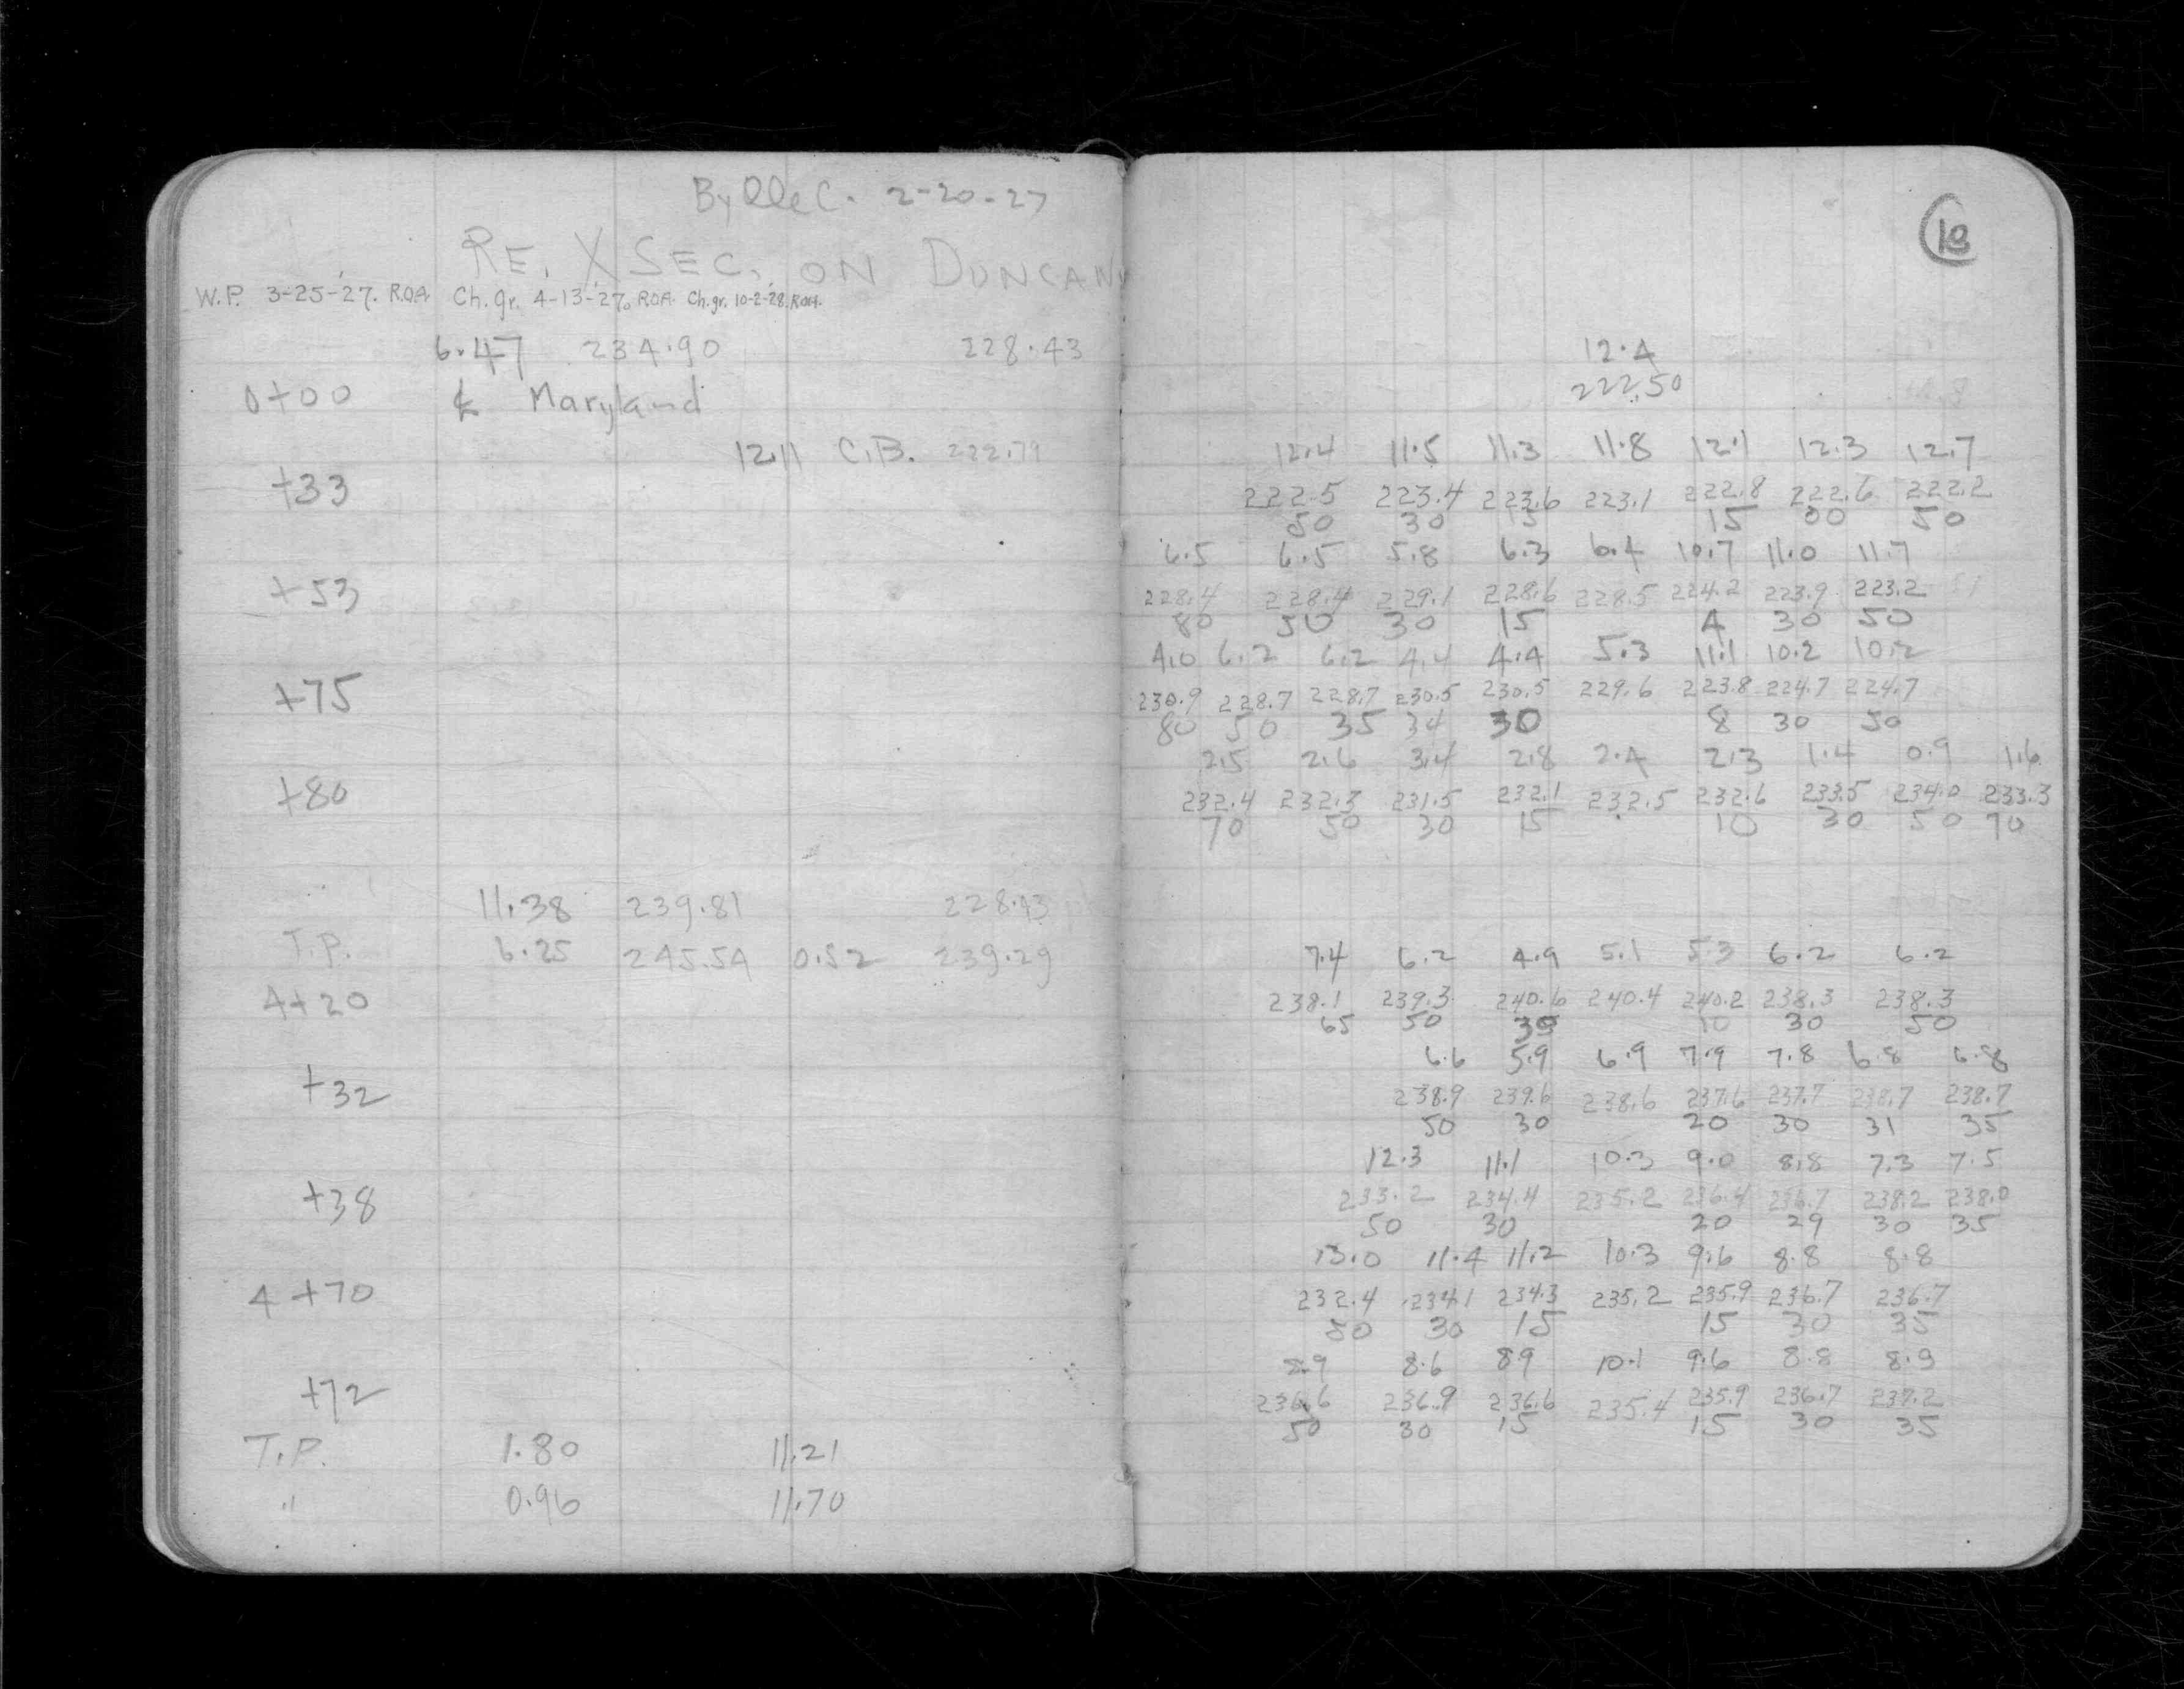 2-20-27
RE. XSEC. ON DUNCAN
W.P. 3-25-27. R.O.A. Ch. gr. 4-13-27. ROA. Ch. gr. 10-2-28. ROA.
6.47 234.90 228.43
0+00 ℄ Maryland
12.11 C.B. 222.79
+33
+53
+75
+80
11.38 239.81 228.43
T.P. 6.25 245.54 0.52 239.29
4+20
+32
+38
4+70
+72
T.P. 1.80 11.21
" 0.96 11.70
18
12.4
222.50
12.4 11.5 11.3 11.8 12.1 12.3 12.7
222.5 223.4 223.6 223.1 222.8 222.6 222.2
50 30 15 15 30 50
6.5 6.5 5.8 6.3 6.4 10.7 11.0 11.7
228.4 228.4 229.1 228.6 228.5 224.2 223.9 223.2
80 50 30 15 4 30 50
4.0 6.2 6.2 4.4 4.4 5.3 11.1 10.2 10.2
230.9 228.7 228.7 230.5 230.5 229.6 223.8 224.7 224.7
80 50 35 34 30 8 30 50
2.5 2.6 3.4 2.8 2.4 2.3 1.4 0.9 1.6
232.4 232.3 231.5 232.1 232.5 232.6 233.5 234.0 233.3
70 50 30 15 10 30 50 70
7.4 6.2 4.9 5.1 5.3 6.2 6.2
238.1 239.3 240.6 240.4 240.2 238.3 238.3
65 50 30 10 30 50
6.6 5.9 6.9 7.9 7.8 6.8 6.8
238.9 239.6 238.6 237.6 237.7 238.7 238.7
50 30 20 30 31 35
12.3 11.1 10.3 9.0 8.8 7.3 7.5
233.2 234.4 235.2 236.4 236.7 238.2 238.0
50 30 20 29 30 35
13.0 11.4 11.2 10.3 9.6 8.8 8.8
232.4 234.1 234.3 235.2 235.9 236.7 236.7
50 30 15 15 30 35
8.9 8.6 8.9 10.1 9.6 8.8 8.3
236.6 236.9 236.6 235.4 235.9 236.7 237.2
50 30 15 15 30 35